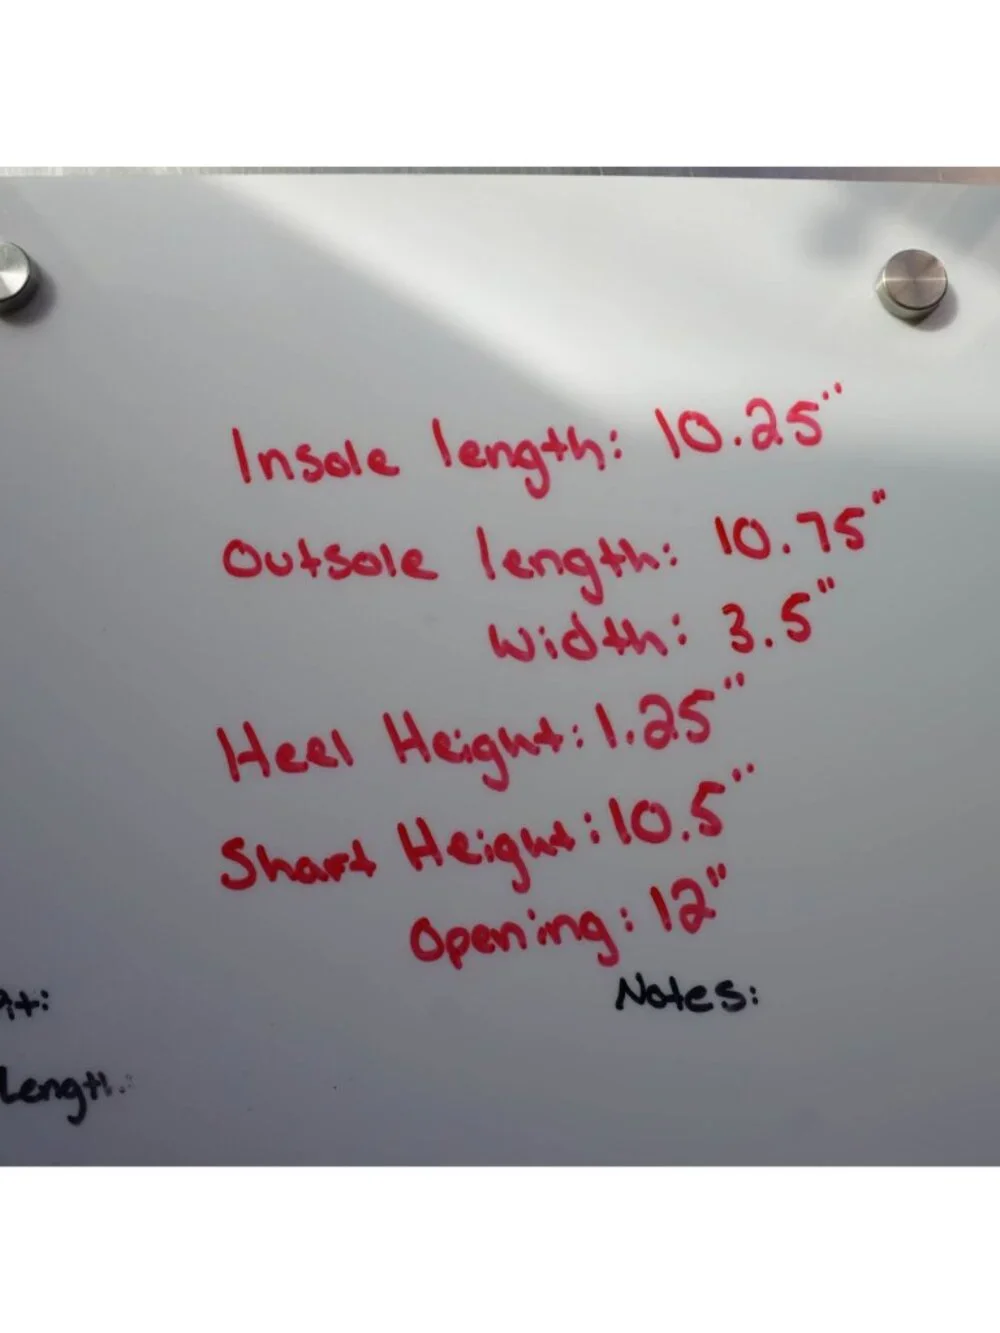 Insole length: 10.25"
Outsole length: 10.75"
Width: 3.5"
Heel Height: 1.25"
Shaft Height: 10.5"
Opening: 12"
Notes:
it:
Length: